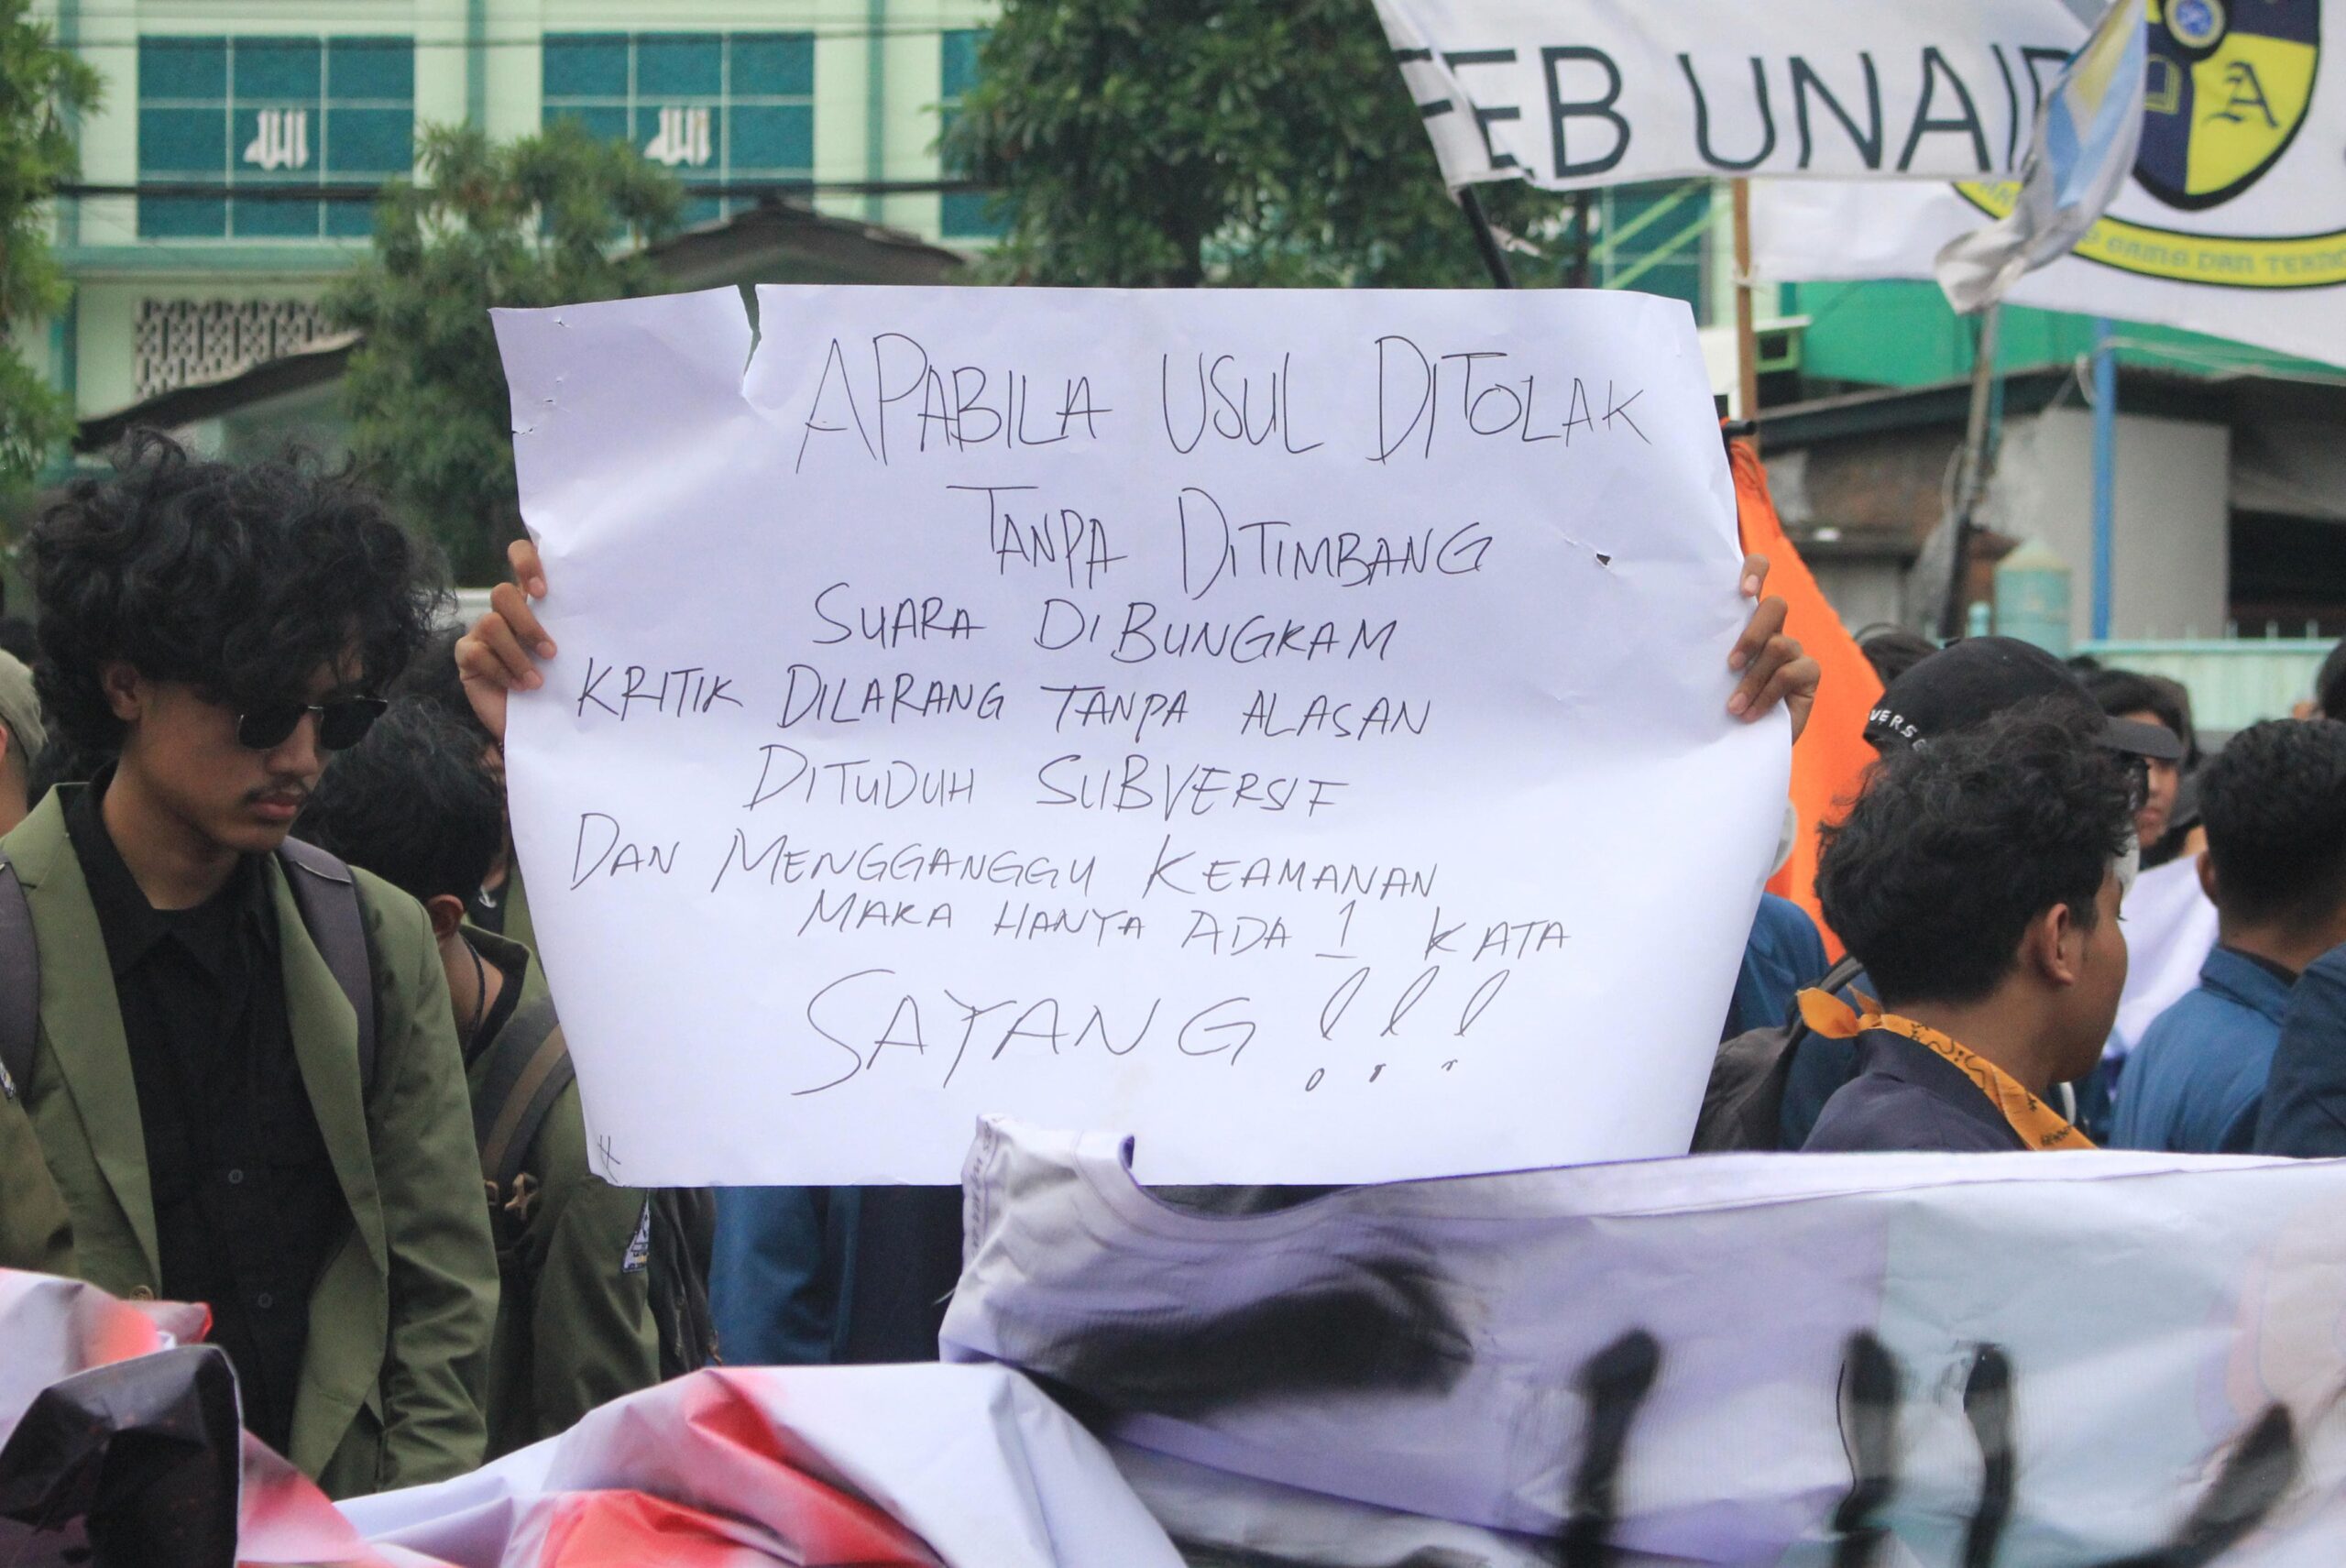 FEB UNAIR
A
DAN TEKN
APABILA USUL DITOLAK
TANPA DITIMBANG
SUARA DIBUNGKAM
KRITIK DILARANG TANPA ALASAN
DITUDUH SUBVERSIF
DAN MENGGANGGU KEAMANAN
MAKA HANYA ADA 1 KATA
SAYANG!!!
VERSE